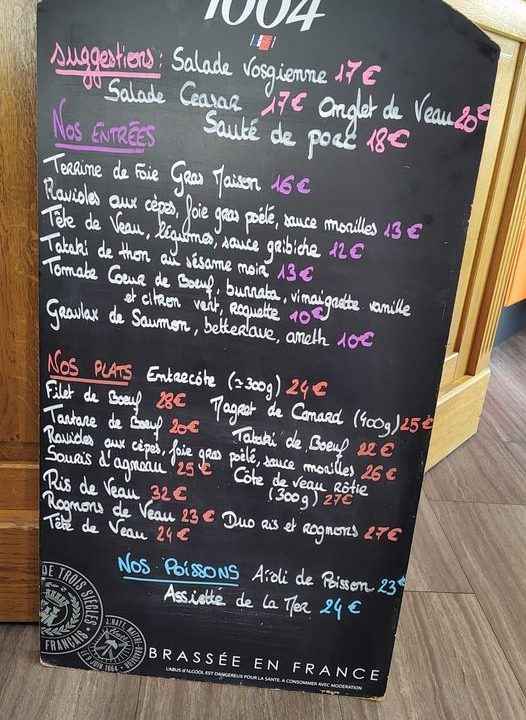 1664
Suggestions: Salade Vosgienne 17€
Salade Ceasar 17€ Onglet de Veau 20€
Sauté de porc 18€
Nos ENTRÉES
Terrine de Foie Gras Maison 16€
Ravioles aux cèpes, foie gras poêlé, sauce morilles 13€
Tête de Veau, légumes, sauce gribiche 12€
Tataki de thon au sésame noir 13€
Tomate Coeur de Boeuf, burrata, vinaigrette vanille
et citron vert, Roquette 10€
Gravlax de Saumon, betterave, aneth 10€
Nos PLATS Entrecôte (≃300g) 24€
Filet de Boeuf 28€ Magret de Canard (400g) 25€
Tartare de Boeuf 20€ Tataki de Boeuf 22€
Ravioles aux cèpes, foie gras poêlé, sauce morilles 26€
Souris d'agneau 25€ Côte de veau Rôtie
(300g) 27€
Ris de Veau 32€
Rognons de Veau 23€ Duo ris et rognons 27€
Tête de Veau 24€
Nos Poissons Aïoli de Poisson 23€
Assiette de la Mer 24€
DE TROIS SIÈCLES
FRANÇAIS
BRASSÉE EN FRANCE
L'ABUS D'ALCOOL EST DANGEREUX POUR LA SANTÉ. A CONSOMMER AVEC MODÉRATION